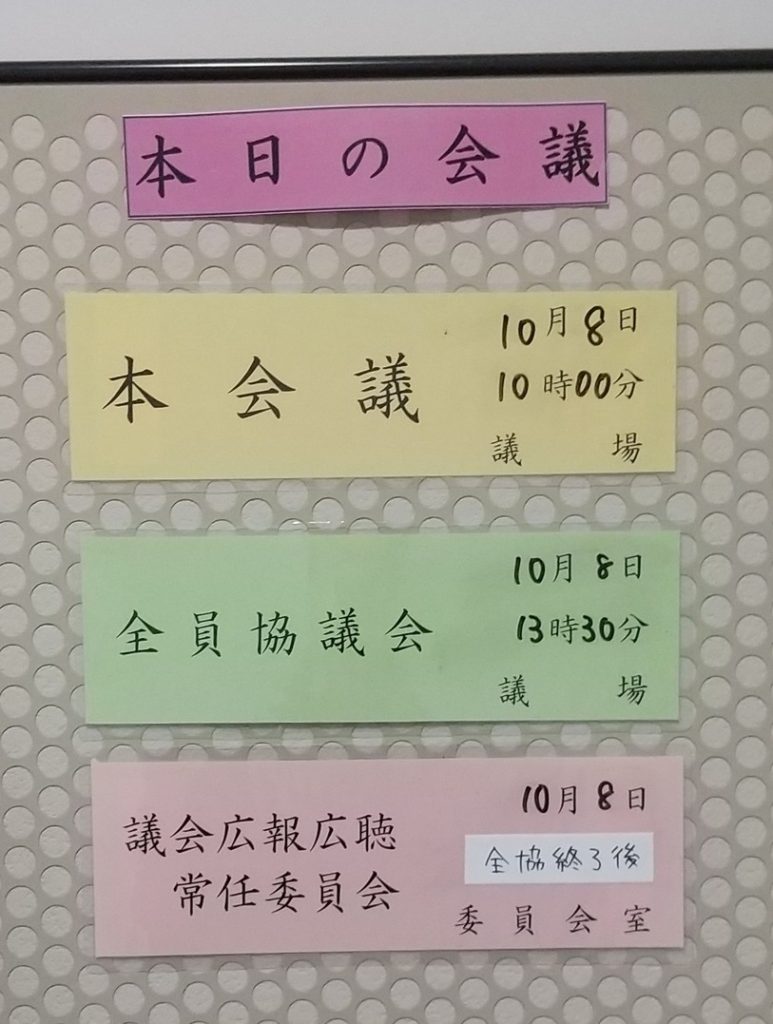 本日の会議
本会議
10月8日
10時00分
議場
全員協議会
10月8日
13時30分
議場
議会広報広聴
常任委員会
10月8日
全協終了後
委員会室